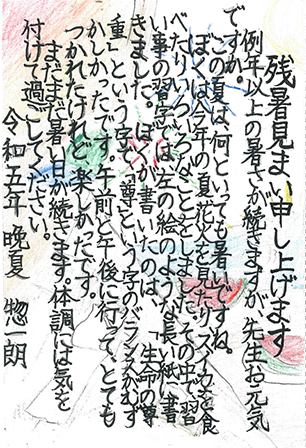 残暑見まい申し上げます
例年以上の暑さが続きますが、先生お元気
ですか。
この夏は、何といっても暑いですね。
ぼくは今年の夏、花火を見たりスイカを食
べたりいろいろなことをしました。その中で、習
い事の習字では、左の絵のような長い紙に書
きました。ぼくが書いたのは、「生命の尊
重」という字で、「尊」という字のバランスがむず
かしかったです。午前と午後に行って、とても
つかれたけれど楽しかったです。
まだまだ暑い日が続きます。体調には気を
付けて過ごしてください。
令和五年 晩夏 惣一朗